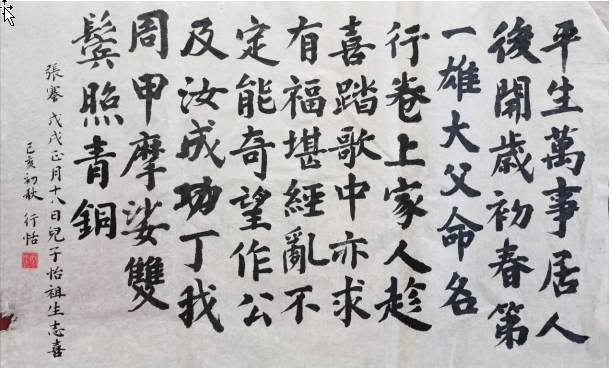 平生萬事居人
後開歲初春第
一雄大父命名
行卷上家人趁
喜踏歌中亦求
有福堪經亂不
定能奇望作公
及汝成功丁我
周甲摩娑雙
鬢照青銅
張謇 戊戌正月十八日兒子怡祖生志喜
己亥初秋 行恬